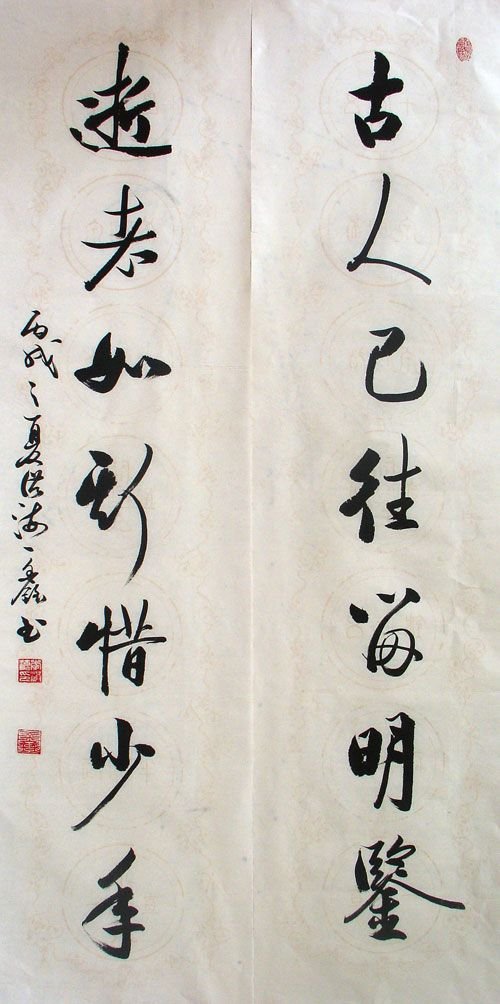 古人已往留明鑒
逝者如斯惜少年
丙戌之夏洪海一鑫书